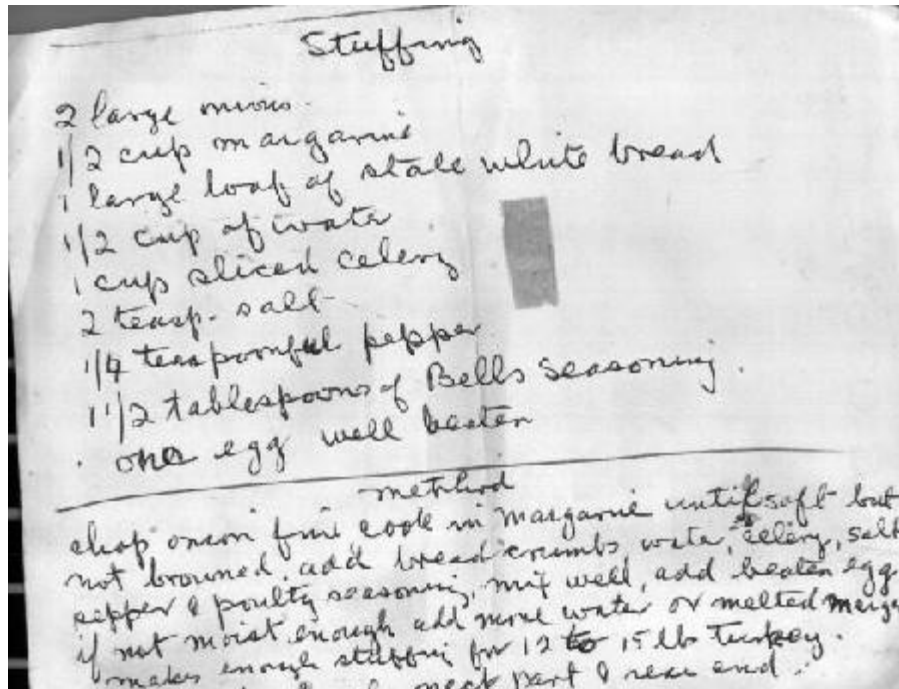 Stuffing
2 large onions
1/2 cup margarine
1 large loaf of stale white bread
1/2 cup of water
1 cup sliced celery
2 teasp. salt
1/4 teaspoonful pepper
1 1/2 tablespoons of Bells seasoning.
one egg well beaten
method
chop onion fine cook in margarine until soft but
not browned. add bread crumbs, water, celery, salt
pepper & poulty seasoning, mix well, add beaten egg
if not moist enough add more water or melted marga
makes enough stuffing for 12 to 15 lb turkey.
neck part & rear end.